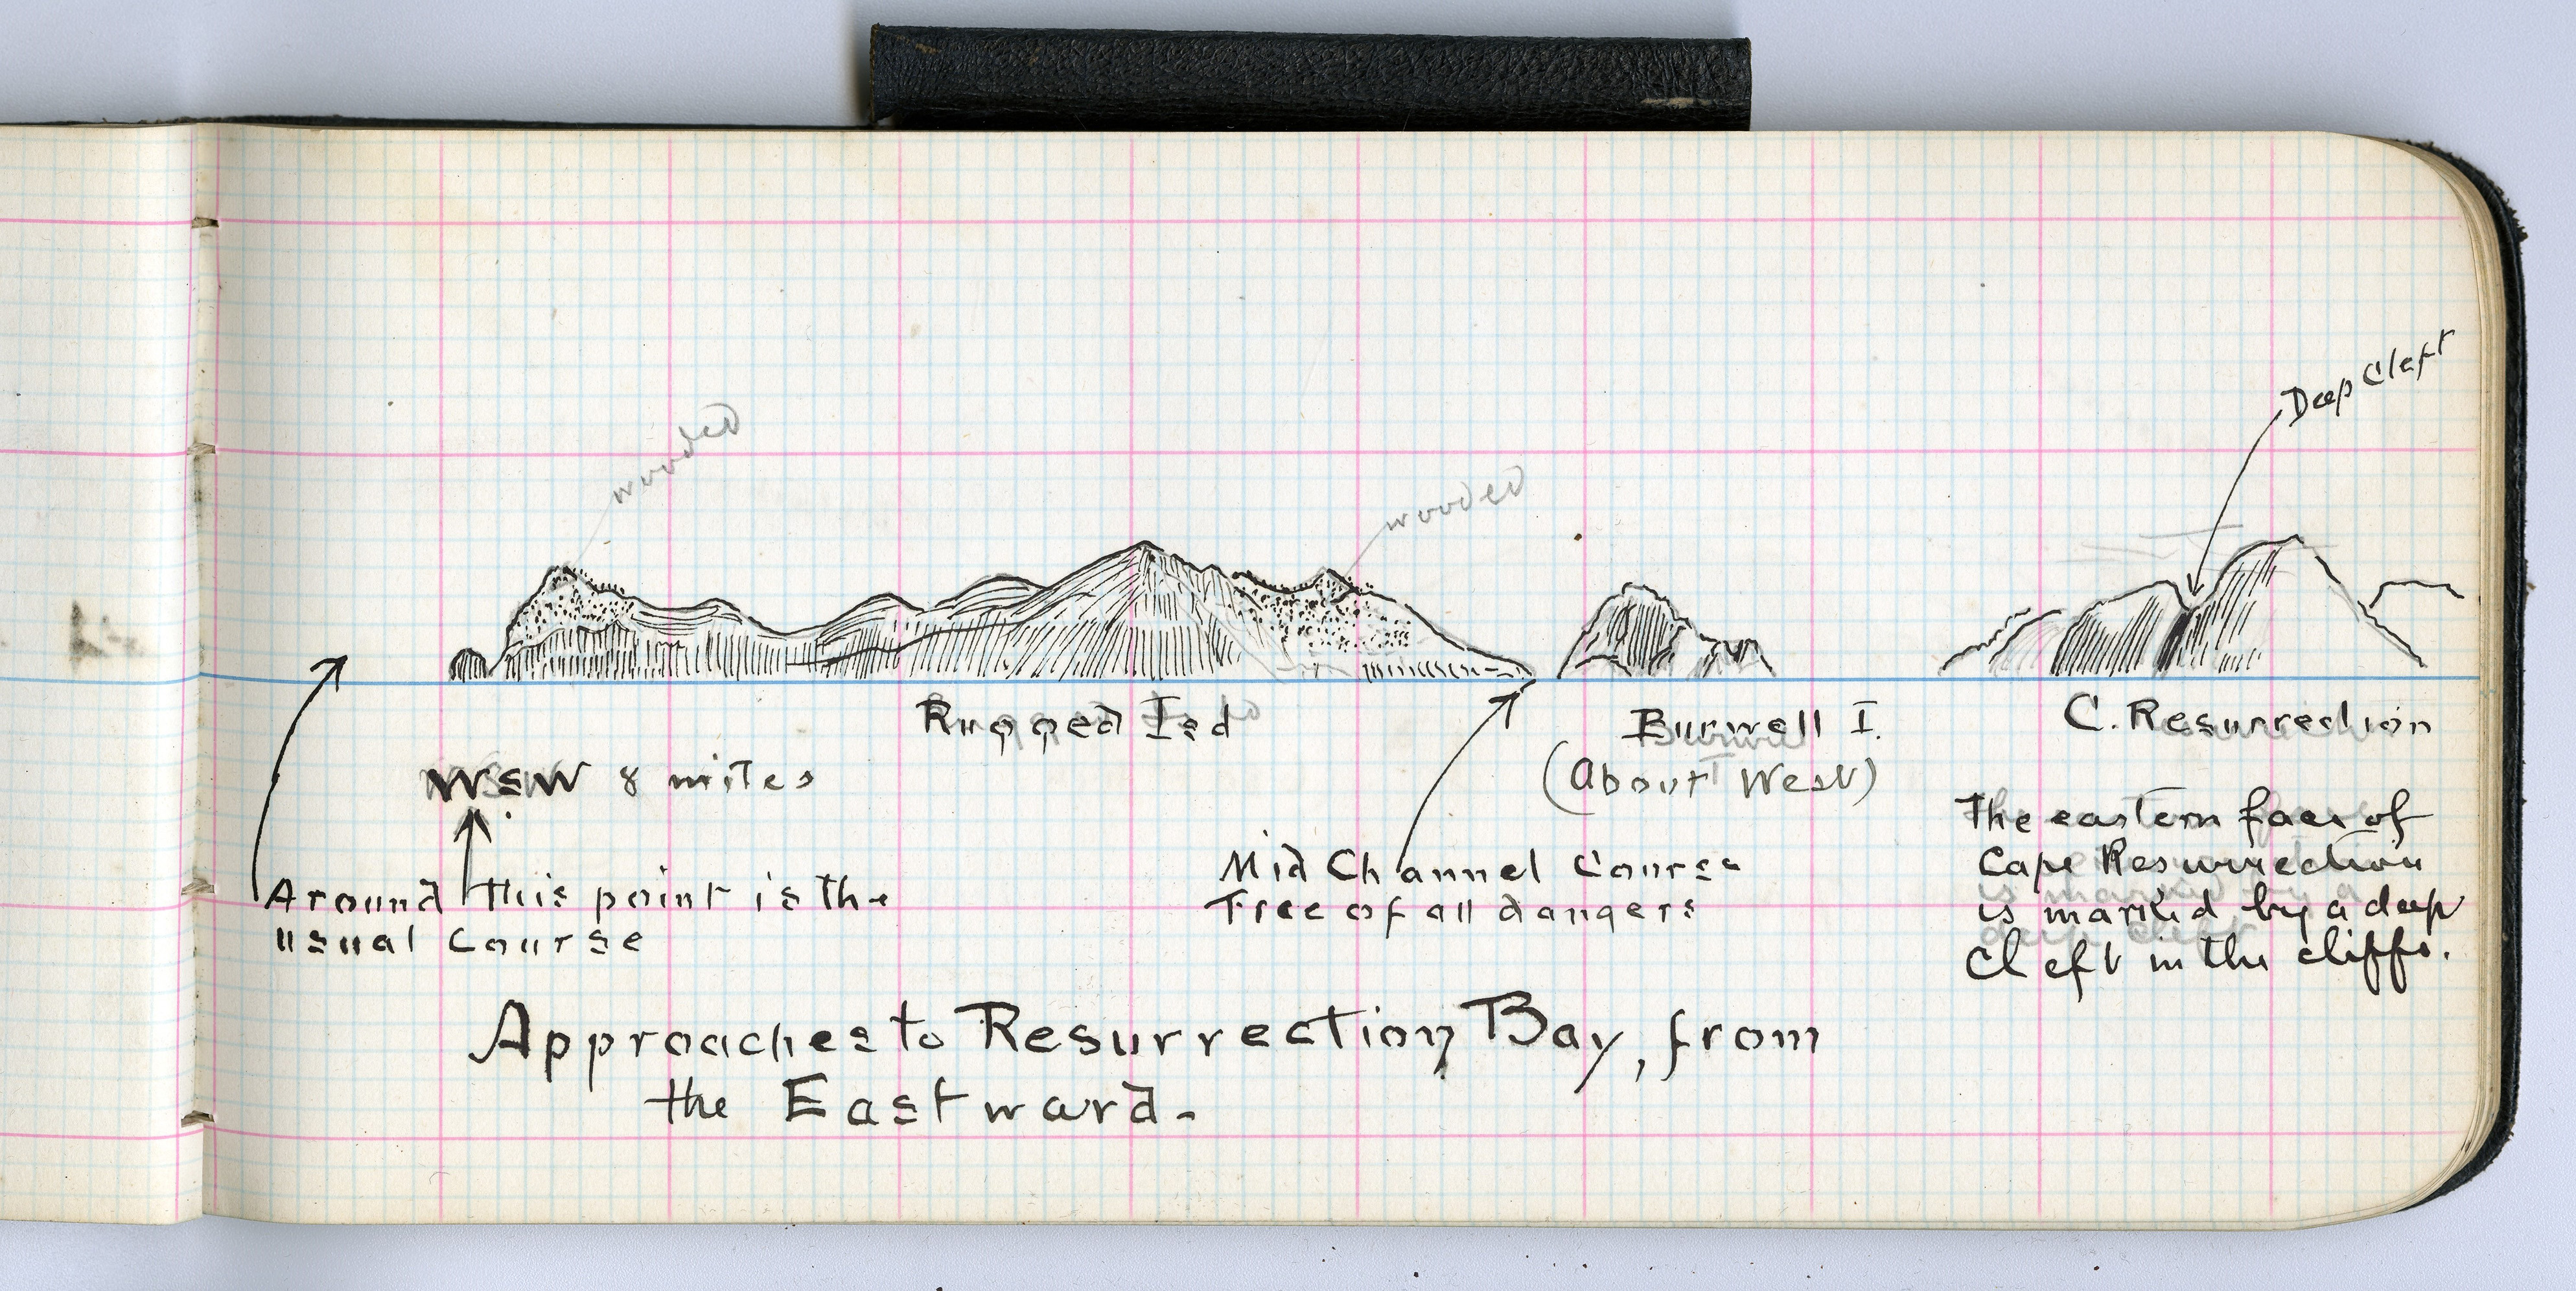 Deep Cleft
wooded
wooded
Rugged Isd
Burwell I.
C. Resurrection
WSW 8 miles
(About West)
The eastern face of
Cape Resurrection
is marked by a deep
Cleft in the cliffs.
Mid Channel Course
Free of all dangers
Around this point is the
usual Course
Approaches to Resurrection Bay, from
the Eastward.